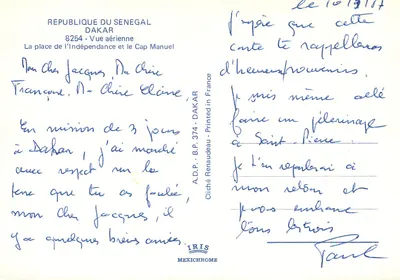 REPUBLIQUE DU SENEGAL
DAKAR
8254 - Vue aérienne
La place de l'Indépendance et le Cap Manuel
Mon Cher Jacques, Ma Chère
Françoise, Ma Chère Claire,
En mission de 3 jours
à Dakar, j'ai marché
avec respect sur la
terre que tu as foulée,
mon cher Jacques, il
y a quelques brèves années.
A.D.P. - B.P. 374 - DAKAR
Cliché Renaudeau - Printed in France
IRIS
MEXICHROME
le
J'espère que cette
carte te rappellera
d'heureux souvenirs.
Je suis même allé
faire un pèlerinage
à Saint-Pierre.
Je t'en reparlerai à
mon retour et
vous embrasse
tous les trois
Paul